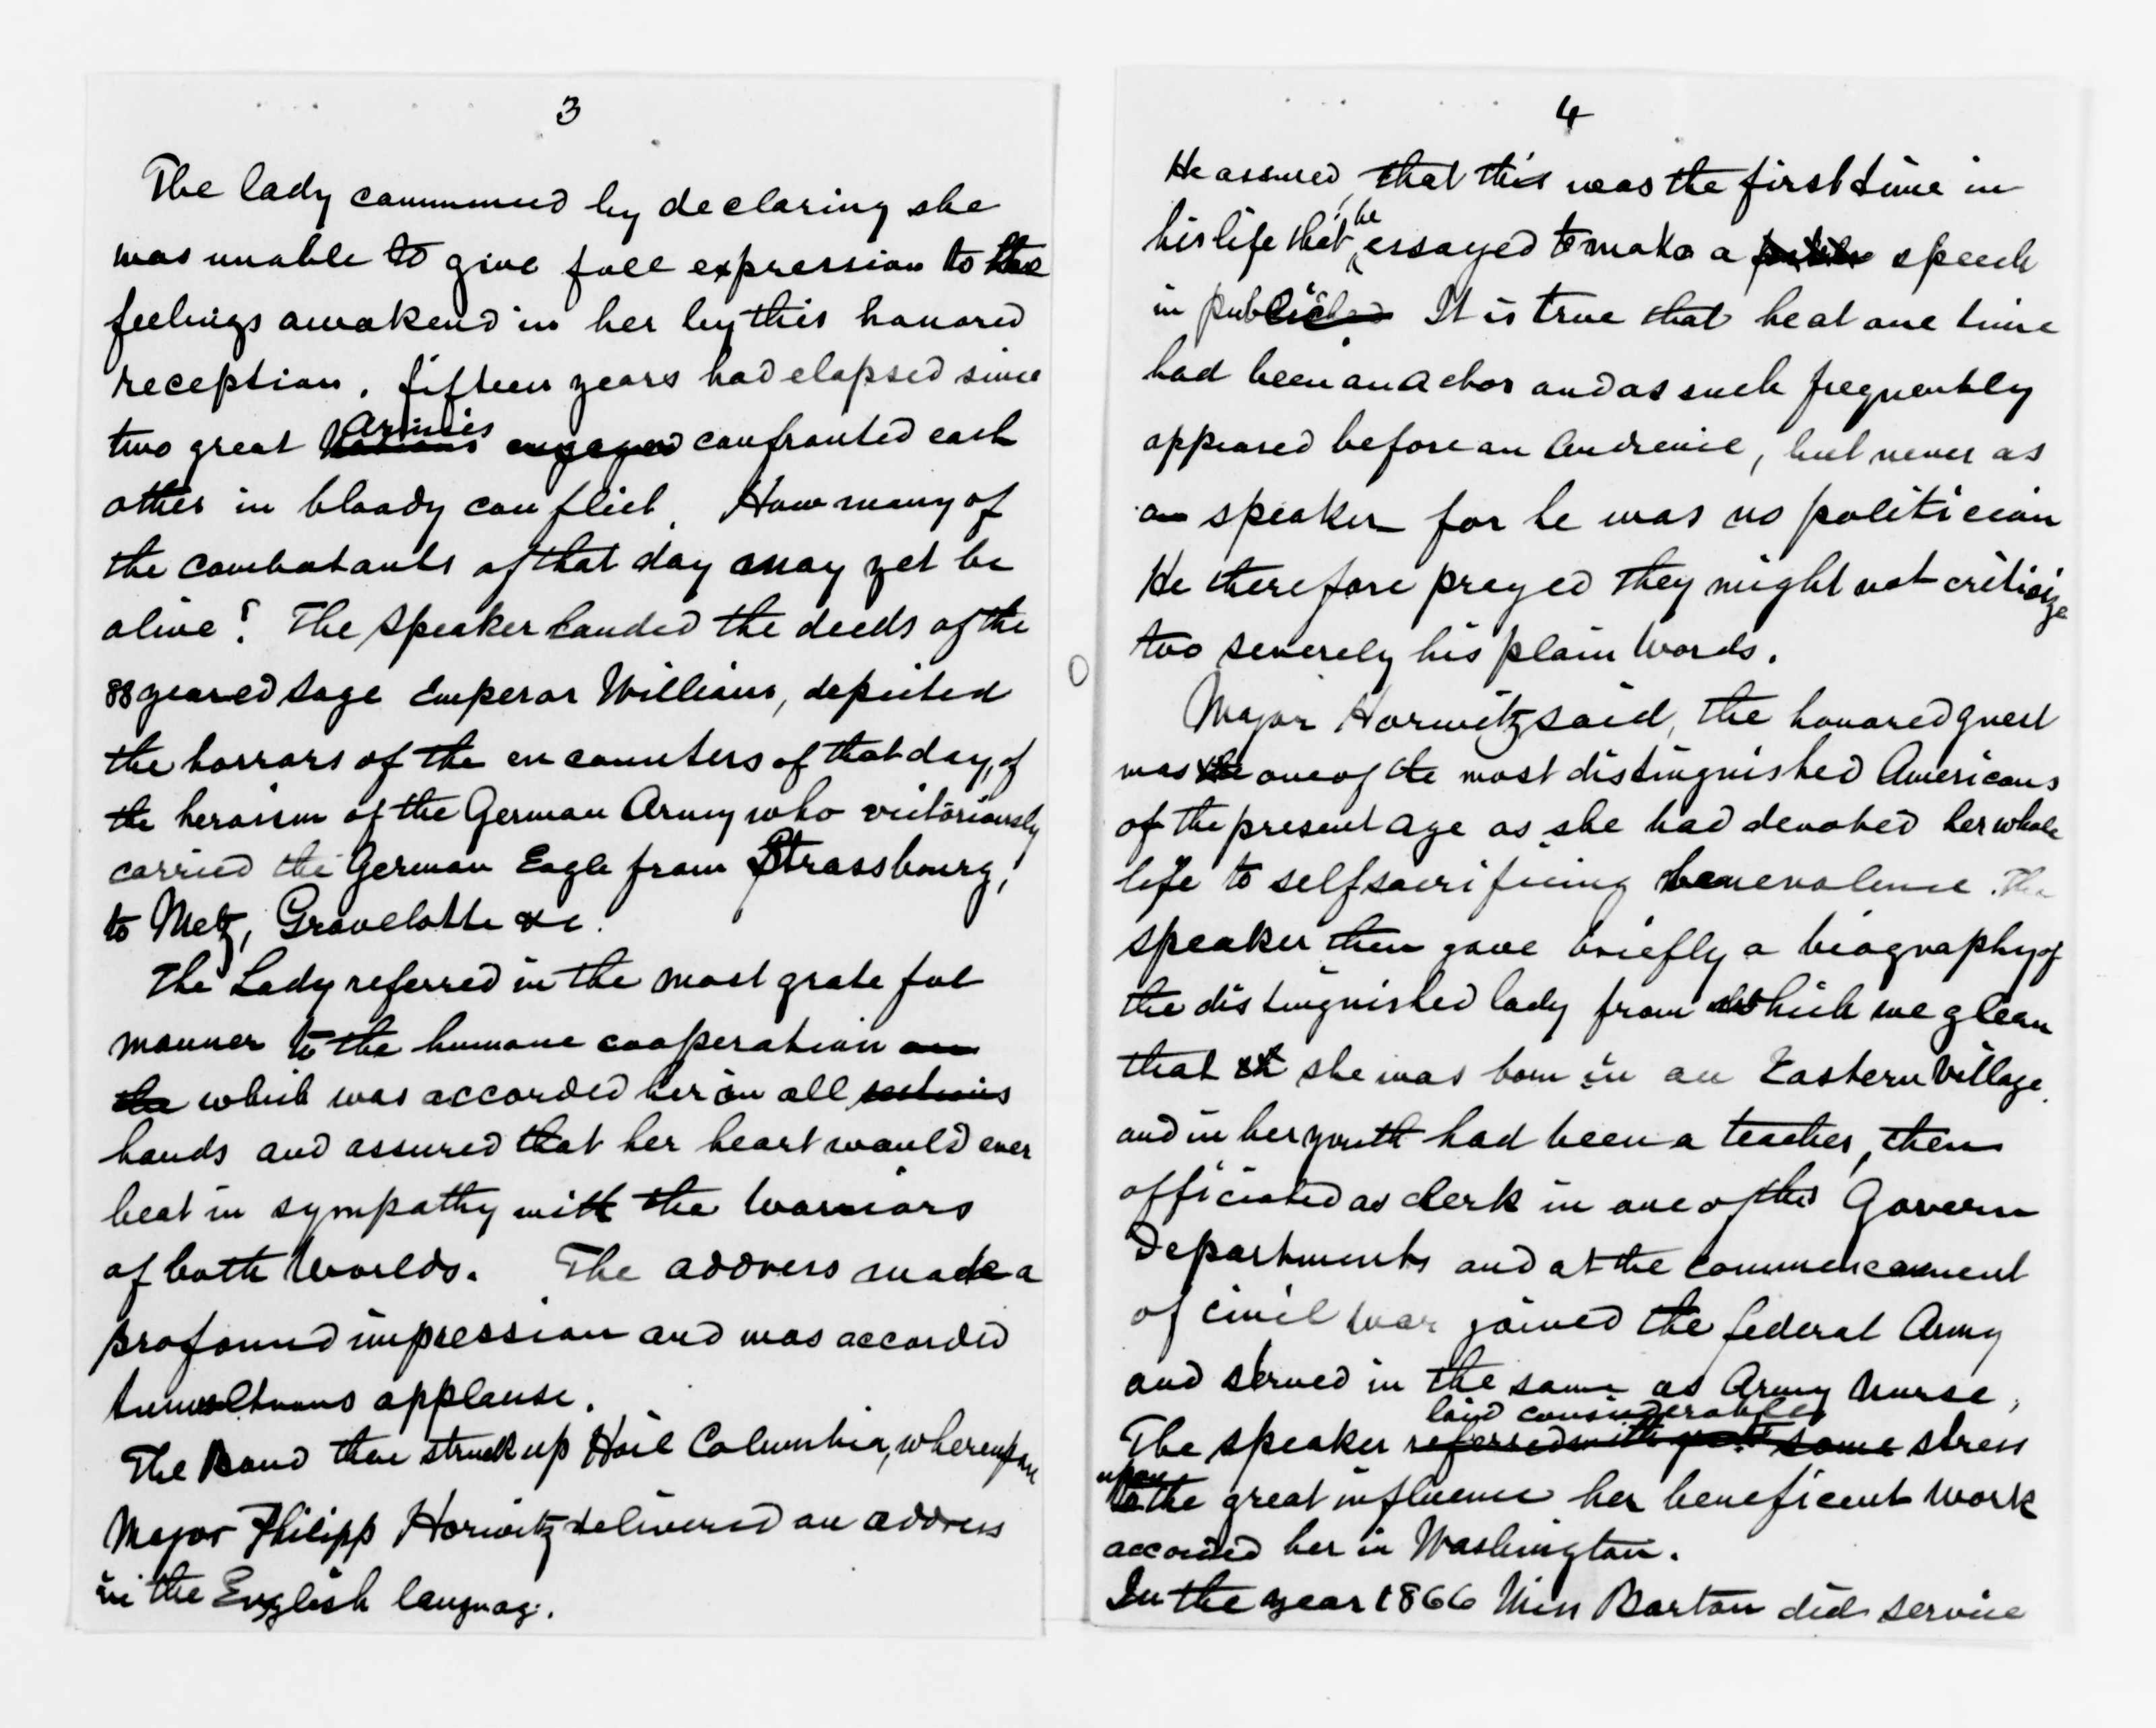 3
The lady commenced by declaring she
was unable to give full expression to the
feelings awakend in her by this honored
reception. fifteen years had elapsed since
two great Armies confronted each
other in bloody conflict. How many of
the combatants of that day may yet be
alive? The speaker lauded the deeds of the
88 yeared sage Emperor William, depicted
the horrors of the encounters of that day, of
the heroism of the German Army who victoriously
carried the German Eagle from Strassbourg,
to Metz, Gravelotte &c.
The Lady referred in the most grateful
manner to the humane cooperation
which was accorded her on all
hands and assured that her heart would ever
beat in sympathy with the Warriors
of both Worlds. The address made a
profound impression and was accorded
tumultuous applause.
The Band then struck up Hail Columbia, whereupon
Major Philipp Horwitz delivered an address
in the English languag.
4
He assured, that this was the first time in
his life that he essayed to make a speech
in public. It is true that he at one time
had been an Actor and as such frequently
appeared before an Audience, but never as
a speaker for he was no politician
He therefore prayed they might not criticize
too severely his plain Words.
Major Horwitz said, the honored guest
was one of the most distinguished Americans
of the present age as she had devoted her whole
life to selfsacrificing benevolence. The
speaker then gave briefly a biography of
the distinguished lady from which we glean
that she was born in an Eastern Village
and in her youth had been a teacher, then
officiated as clerk in one of the Govern
Departments and at the commencement
of civil war joined the federal Army
and served in the same as Army Nurse,
laid considerable
The speaker stress
upon the great influence her beneficent work
accorded her in Washington.
In the year 1866 Miss Barton did service